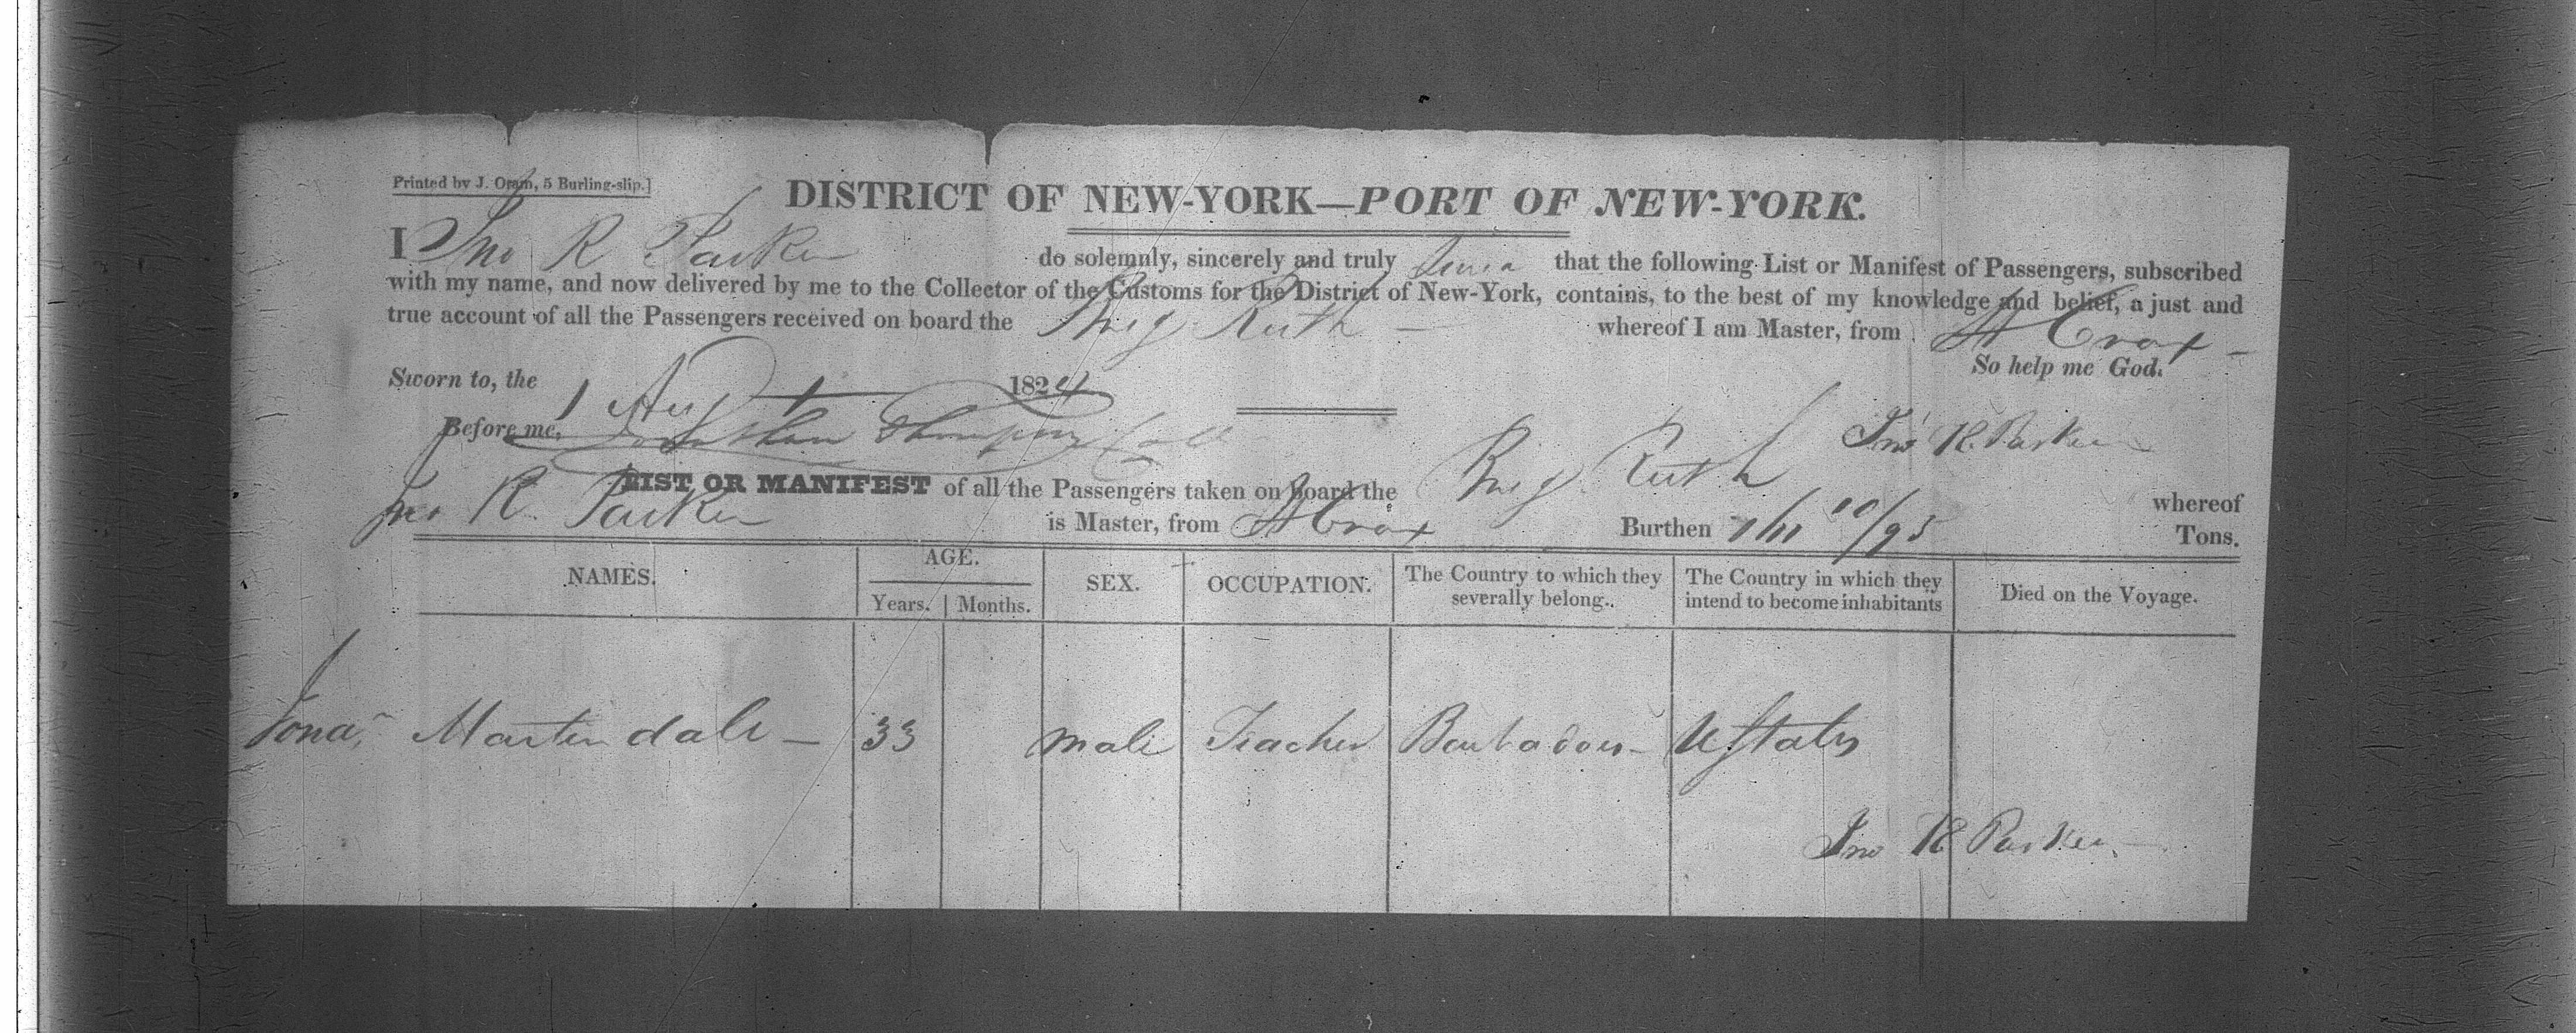 Printed by J. Oram, 5 Burling-slip.]
DISTRICT OF NEW-YORK—PORT OF NEW-YORK.
I Jno R Parker do solemnly, sincerely and truly that the following List or Manifest of Passengers, subscribed
with my name, and now delivered by me to the Collector of the Customs for the District of New-York, contains, to the best of my knowledge and belief, a just and
true account of all the Passengers received on board the Brig Ruth — whereof I am Master, from St Croix –
So help me God.
Sworn to, the 1 Augt 1824
Before me, Jonathan Thompson Coll
Jno R. Parker
LIST OR MANIFEST of all the Passengers taken on board the Brig Ruth whereof
Jno R. Parker is Master, from St Croix Burthen 10/95 Tons.
NAMES. AGE. SEX. OCCUPATION. The Country to which they severally belong. The Country in which they intend to become inhabitants Died on the Voyage.
Years. Months.
Jona. Martindale – 33 male Teacher Barbadoes – UStates
Jno R Parker